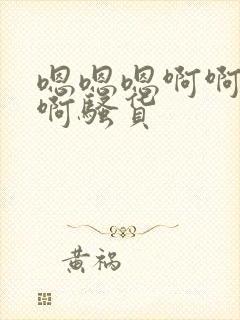 嗯嗯嗯啊啊
啊骚货
黄祸